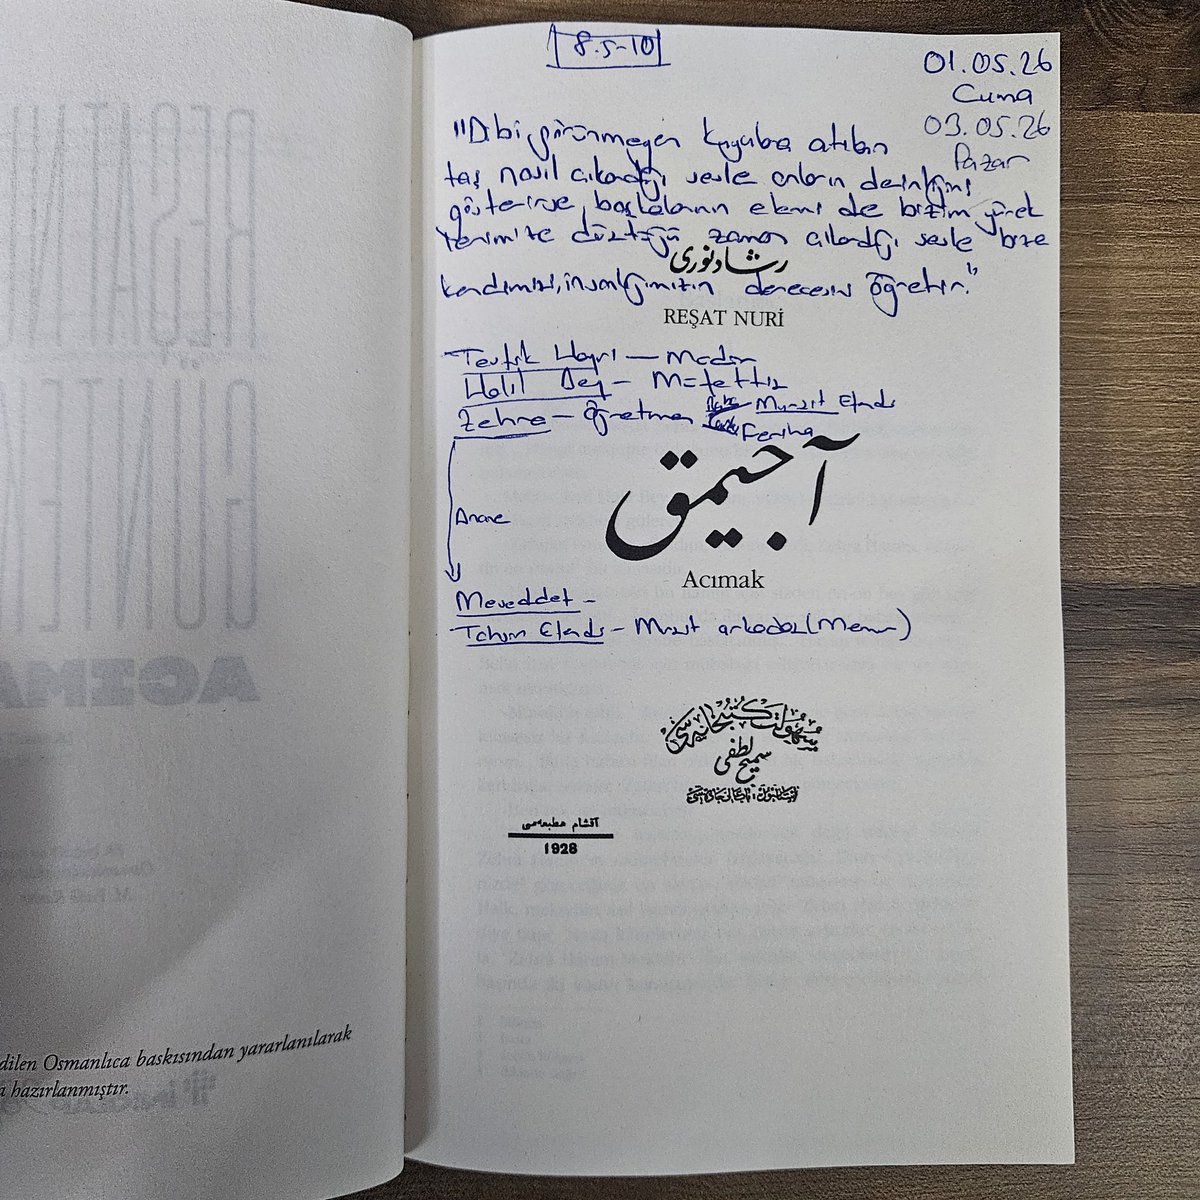 8.5-10
01.05.26
Cuma
03.05.26
Pazar
"Dibi görünmeyen kuyulara atılan
taş nasıl çıkardığı sesle onların derinliğini
gösterirse, başkalarının elemi de bizim yürek
lerimize düştüğü zaman çıkardığı sesle bize
kendimizi, insanlığımızın derecesini öğretir."
رشاد نوری
REŞAT NURİ
Tevfik Hayri — Müdür
Halil Bey — Müfettiş
Zehra — Öğretmen
Mürşit Efendi
Feriha
آجیمق
Anane
Acımak
Meveddet -
Tahsin Efendi - Mürşit arkadaşı (Memur)
سهولت كتبخانه سی
سمیح لطفی
آقشام مطبعه‌سی
1928
dilen Osmanlıca baskısından yararlanılarak
hazırlanmıştır.